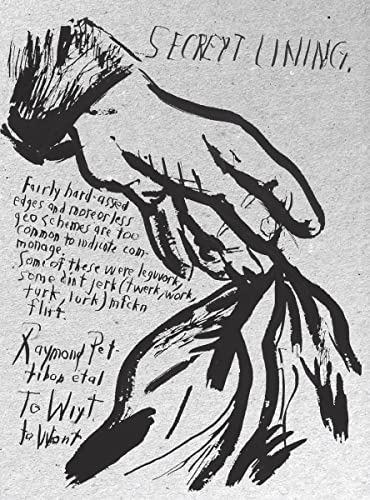 SECREYT LINING.
Fairly hard-assed
edges and more or less
geo schemes are too
common to indicate com-
monage.
Some of these were legwork,
some ain't jerk (twerk, work,
turk, lurk) mfckn
flirt
Raymond Pet-
tibon etal
To Wiyt,
to Wont